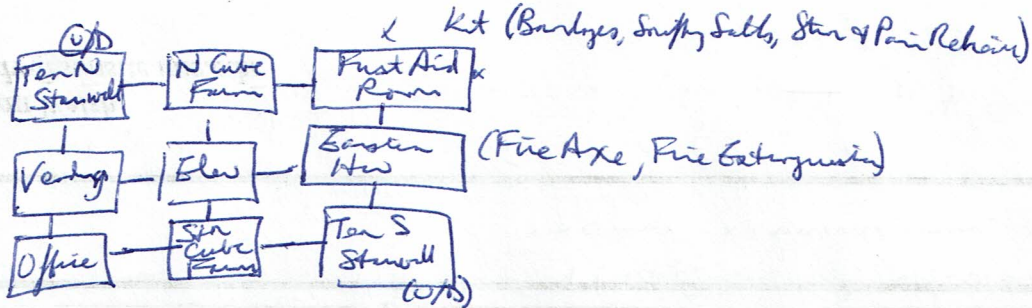 Kit (Bandages, Smelling Salts, Sten & Pain Reliever)
U/D
Ten N
Stairwell
N Cube
Farm
First Aid
Room
Vending
Elev
Eastern
Hw
(Fire Axe, Fire Extinguisher)
Office
Sth
Cube
Farm
Ten S
Stairwell
(U/D)